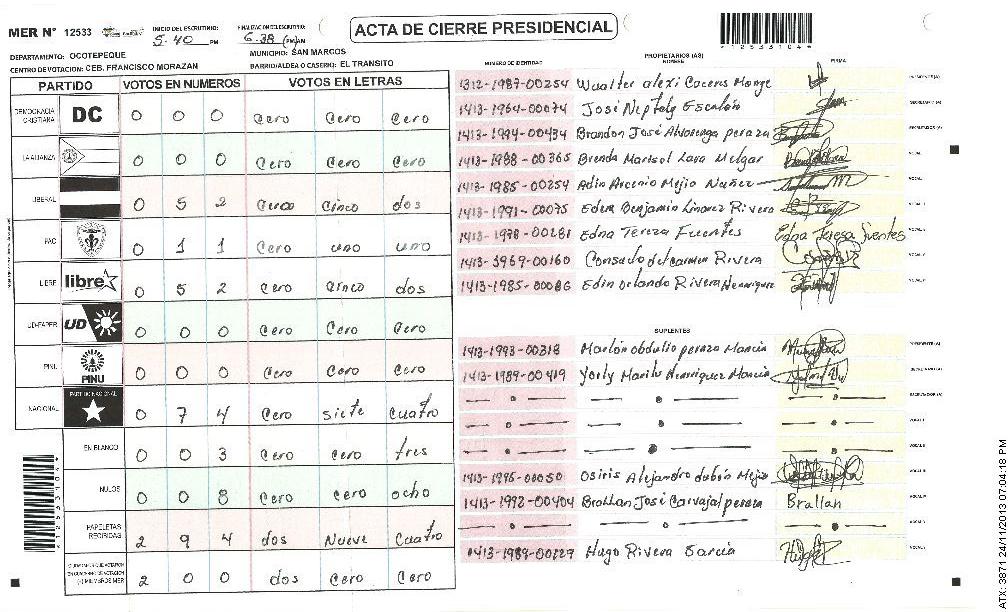 MER N° 12533
INICIO DEL ESCRUTINIO: 5.40 PM
FINALIZACION ESCRUTINIO: 6.38 (PM)AM
ACTA DE CIERRE PRESIDENCIAL
DEPARTAMENTO: OCOTEPEQUE
MUNICIPIO: SAN MARCOS
CENTRO DE VOTACION: CEB. FRANCISCO MORAZAN
BARRIO/ALDEA O CASERIO: EL TRANSITO
PARTIDO VOTOS EN NUMEROS VOTOS EN LETRAS
DEMOCRACIA CRISTIANA DC 0 0 0 Cero Cero Cero
LA ALIANZA 0 0 0 Cero Cero Cero
LIBERAL 0 5 2 Cero Cinco dos
PAC 0 1 1 Cero uno uno
LIBRE libre 0 5 2 Cero cinco dos
UD-FAPER UD 0 0 0 Cero Cero Cero
PINU PINU 0 0 0 Cero Cero Cero
NACIONAL PARTIDO NACIONAL 0 7 4 Cero siete cuatro
EN BLANCO 0 0 3 Cero Cero tres
NULOS 0 0 8 Cero cero ocho
PAPELETAS RECIBIDAS 2 9 4 dos Nueve Cuatro
2 0 0 dos Cero Cero
NUMERO DE IDENTIDAD PROPIETARIOS (AS) NOMBRE FIRMA
1312-1987-00254 Wualter alexi Caceres Monge
1413-1964-00074 José Neptaly Escalón
1413-1994-00434 Brandon José Alvarenga peraza
1413-1988-00365 Brenda Marisol Lara Melgar
1413-1985-00254 Adin Arcenio Mejia Nuñez
1413-1991-00075 Eden Benjamin Linarez Rivera
1413-1978-00281 Edna Tereza Fuentes Edna Teresa fuentes
1413-3969-00160 Consuelo del carmen Rivera
1413-1985-00086 Edin orlando Rivera Henriquez
SUPLENTES
1413-1993-00318 Marlon obdulio peraza Mancia
1413-1989-00419 Yorly Marilu Henriquez Mancia
1413-1995-00050 Osiris Alejandro dubón Mejia
1413-1992-00404 Brallan José Carvajal peraza Brallan
1413-1989-00229 Hugo Rivera Garcia
ATX: 3871 24/11/2013 07:04:18 PM